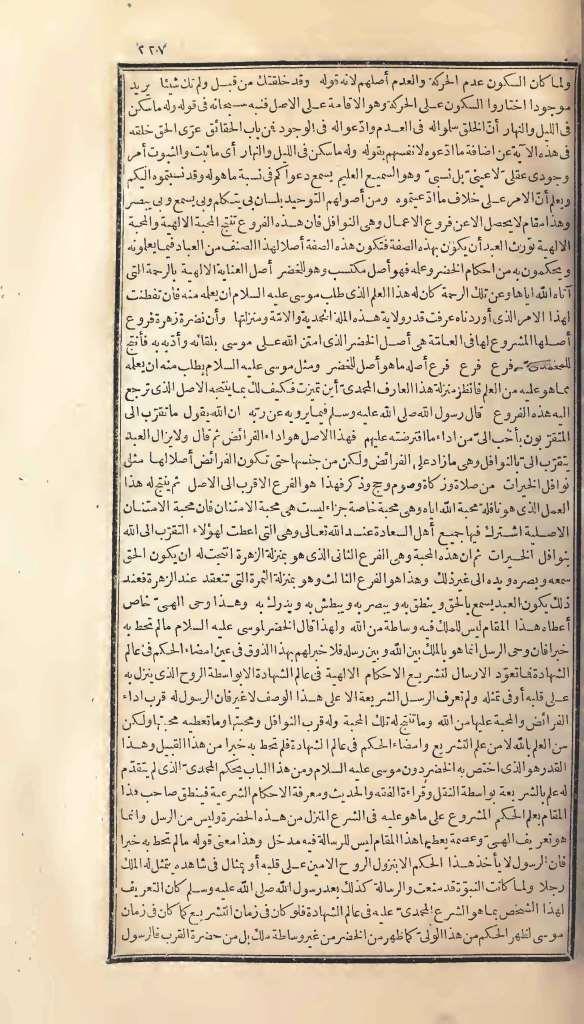 ٢٢٠٧
ولما كان السكون عدم الحركة والعدم أصلهم لانه قوله وقد خلقتك من قبل ولم تك شيئا يريد
موجودا اختاروا السكون على الحركة وهو الاقامة على الاصل فنبه سبحانه في قوله وله ما سكن
في الليل والنهار أنّ الخلق سلوا له في العدم وادّعوا له في الوجود فمن باب الحقائق عرّى الحق خلقه
في هذه الآية عن اضافة ما ادّعوه لانفسهم بقوله وله ما سكن في الليل والنهار أي ما ثبت والثبوت أمر
وجودى عقلىّ لا عينىّ بل نسبىّ وهو السميع العليم يسمع دعواكم في نسبة ما هو له وقد نسبتموه اليكم
ويعلم أنّ الامر على خلاف ما ادّعيتموه ومن أصولهم التوحيد بلسان بى يتكلم وبى يسمع وبى يبصر
وهذا مقام لا يحصل الا عن فروع الاعمال وهى النوافل فان هذه الفروع تنتج المحبة الالهية والمحبة
الالهية تورث العبد أن يكون بهذه الصفة فتكون هذه الصفة أصلا لهذا الصنف من العباد فيما يعلمونه
ويحكمون به من احكام الخضر وعلمه فهو أصل مكتسب وهو للخضر أصل العناية الالهية بالرحمة التى
آتاه الله اياها وعن تلك الرحمة كان له هذا العلم الذى طلب موسى عليه السلام ان يعلمه منه فان تفطنت
لهذا الامر الذى أوردناه عرفت قدر ولاية هذه الملة المحمدية والامّة ومنزلتها وأن ثمرة زهرة فروع
أصلها المشروع لها فى العامّة هى أصل الخضر الذى امتن الله على موسى بلقائه وأدّبه به فأنتج
للمحمدى فرع فرع فرع أصله ما هو أصل للخضر ومثل موسى عليه السلام يطلب منه ان يعلمه
مما هو عليه من العلم فانظر منزلة هذا العارف المحمدى أين تميزت فكيف لك بما ينتجه الاصل الذى ترجع
اليه هذه الفروع قال رسول الله صلى الله عليه وسلم فيما يرويه عن ربه ان الله يقول ما تقرّب الى
المتقرّبون بأحب الىّ من اداء ما افترضته عليهم فهذا الاصل هو اداء الفرائض ثم قال ولا يزال العبد
يتقرّب الىّ بالنوافل وهى ما زاد على الفرائض ولكن من جنسها حتى تكون الفرائض أصلا لها مثل
نوافل الخيرات من صلاة وزكاة وصوم وحج وذكر فهذا هو الفرع الاقرب الى الاصل ثم ينتج له هذا
العمل الذى هو نافلة محبة الله اياه وهى محبة خاصة جزاء ليست هى محبة الامتنان فان محبة الامتنان
الاصلية اشترك فيها جميع أهل السعادة عند الله تعالى وهى التى اعطت لهؤلاء التقرّب الى الله
بنوافل الخيرات ثم ان هذه المحبة وهى الفرع الثانى الذى هو بمنزلة الزهرة انتجت له ان يكون الحق
سمعه وبصره ويده الى غير ذلك وهذا هو الفرع الثالث وهو بمنزلة الثمرة التى تنعقد عند الزهرة فعند
ذلك يكون العبد يسمع بالحق وينطق به ويبصر به ويبطش به ويدرك به وهذا وحى الهىّ خاص
أعطاه هذا المقام ليس للملك فيه وساطة من الله ولهذا قال الخضر لموسى عليه السلام ما لم تحط به
خبرا فان وحى الرسل انما هو بالملك بين الله وبين رسله فلا خبر لهم بهذا الذوق فى عين امضاء الحكم فى عالم
الشهادة فما تعوّد الارسال لتشريع الاحكام الالهية فى عالم الشهادة الا بواسطة الروح الذى ينزل به
على قلبه أو فى تمثله ولم تعرف الرسل الشريعة الا على هذا الوصف لا غير فان الرسول له قرب اداء
الفرائض والمحبة عليها من الله وما تنتج له تلك المحبة وله قرب النوافل ومحبتها وما تعطيه محبتها ولكن
من العلم بالله لا من علم التشريع وامضاء الحكم فى عالم الشهادة فلم تحط به خبرا من هذا القبيل وهذا
القدر هو الذى اختص به الخضر دون موسى عليه السلام ومن هذا الباب يحكم المحمدىّ الذى لم يتقدّم
له علم بالشريعة بواسطة النقل وقراءة الفقه والحديث ومعرفة الاحكام الشرعية فينطق صاحب هذا
المقام بعلم الحكم المشروع على ما هو عليه فى الشرع المنزل من هذه الحضرة وليس من الرسل وانما
هو تعريف الهىّ وعصمة يعطيها هذا المقام ليس للرسالة فيه مدخل وهذا معنى قوله ما لم تحط به خبرا
فان الرسول لا يأخذ هذا الحكم الا بتنزل الروح الامين على قلبه أو بمثال فى شاهده يتمثل له الملك
رجلا ولما كانت النبوّة قد منعت والرسالة كذلك بعد رسول الله صلى الله عليه وسلم كان التعريف
لهذا الشخص بما هو الشرع المحمدىّ عليه فى عالم الشهادة فلو كان فى زمان التشريع كما كان فى زمان
موسى لظهر الحكم من هذا الولىّ كما ظهر من الخضر من غير وساطة ملك بل من حضرة القرب فالرسول